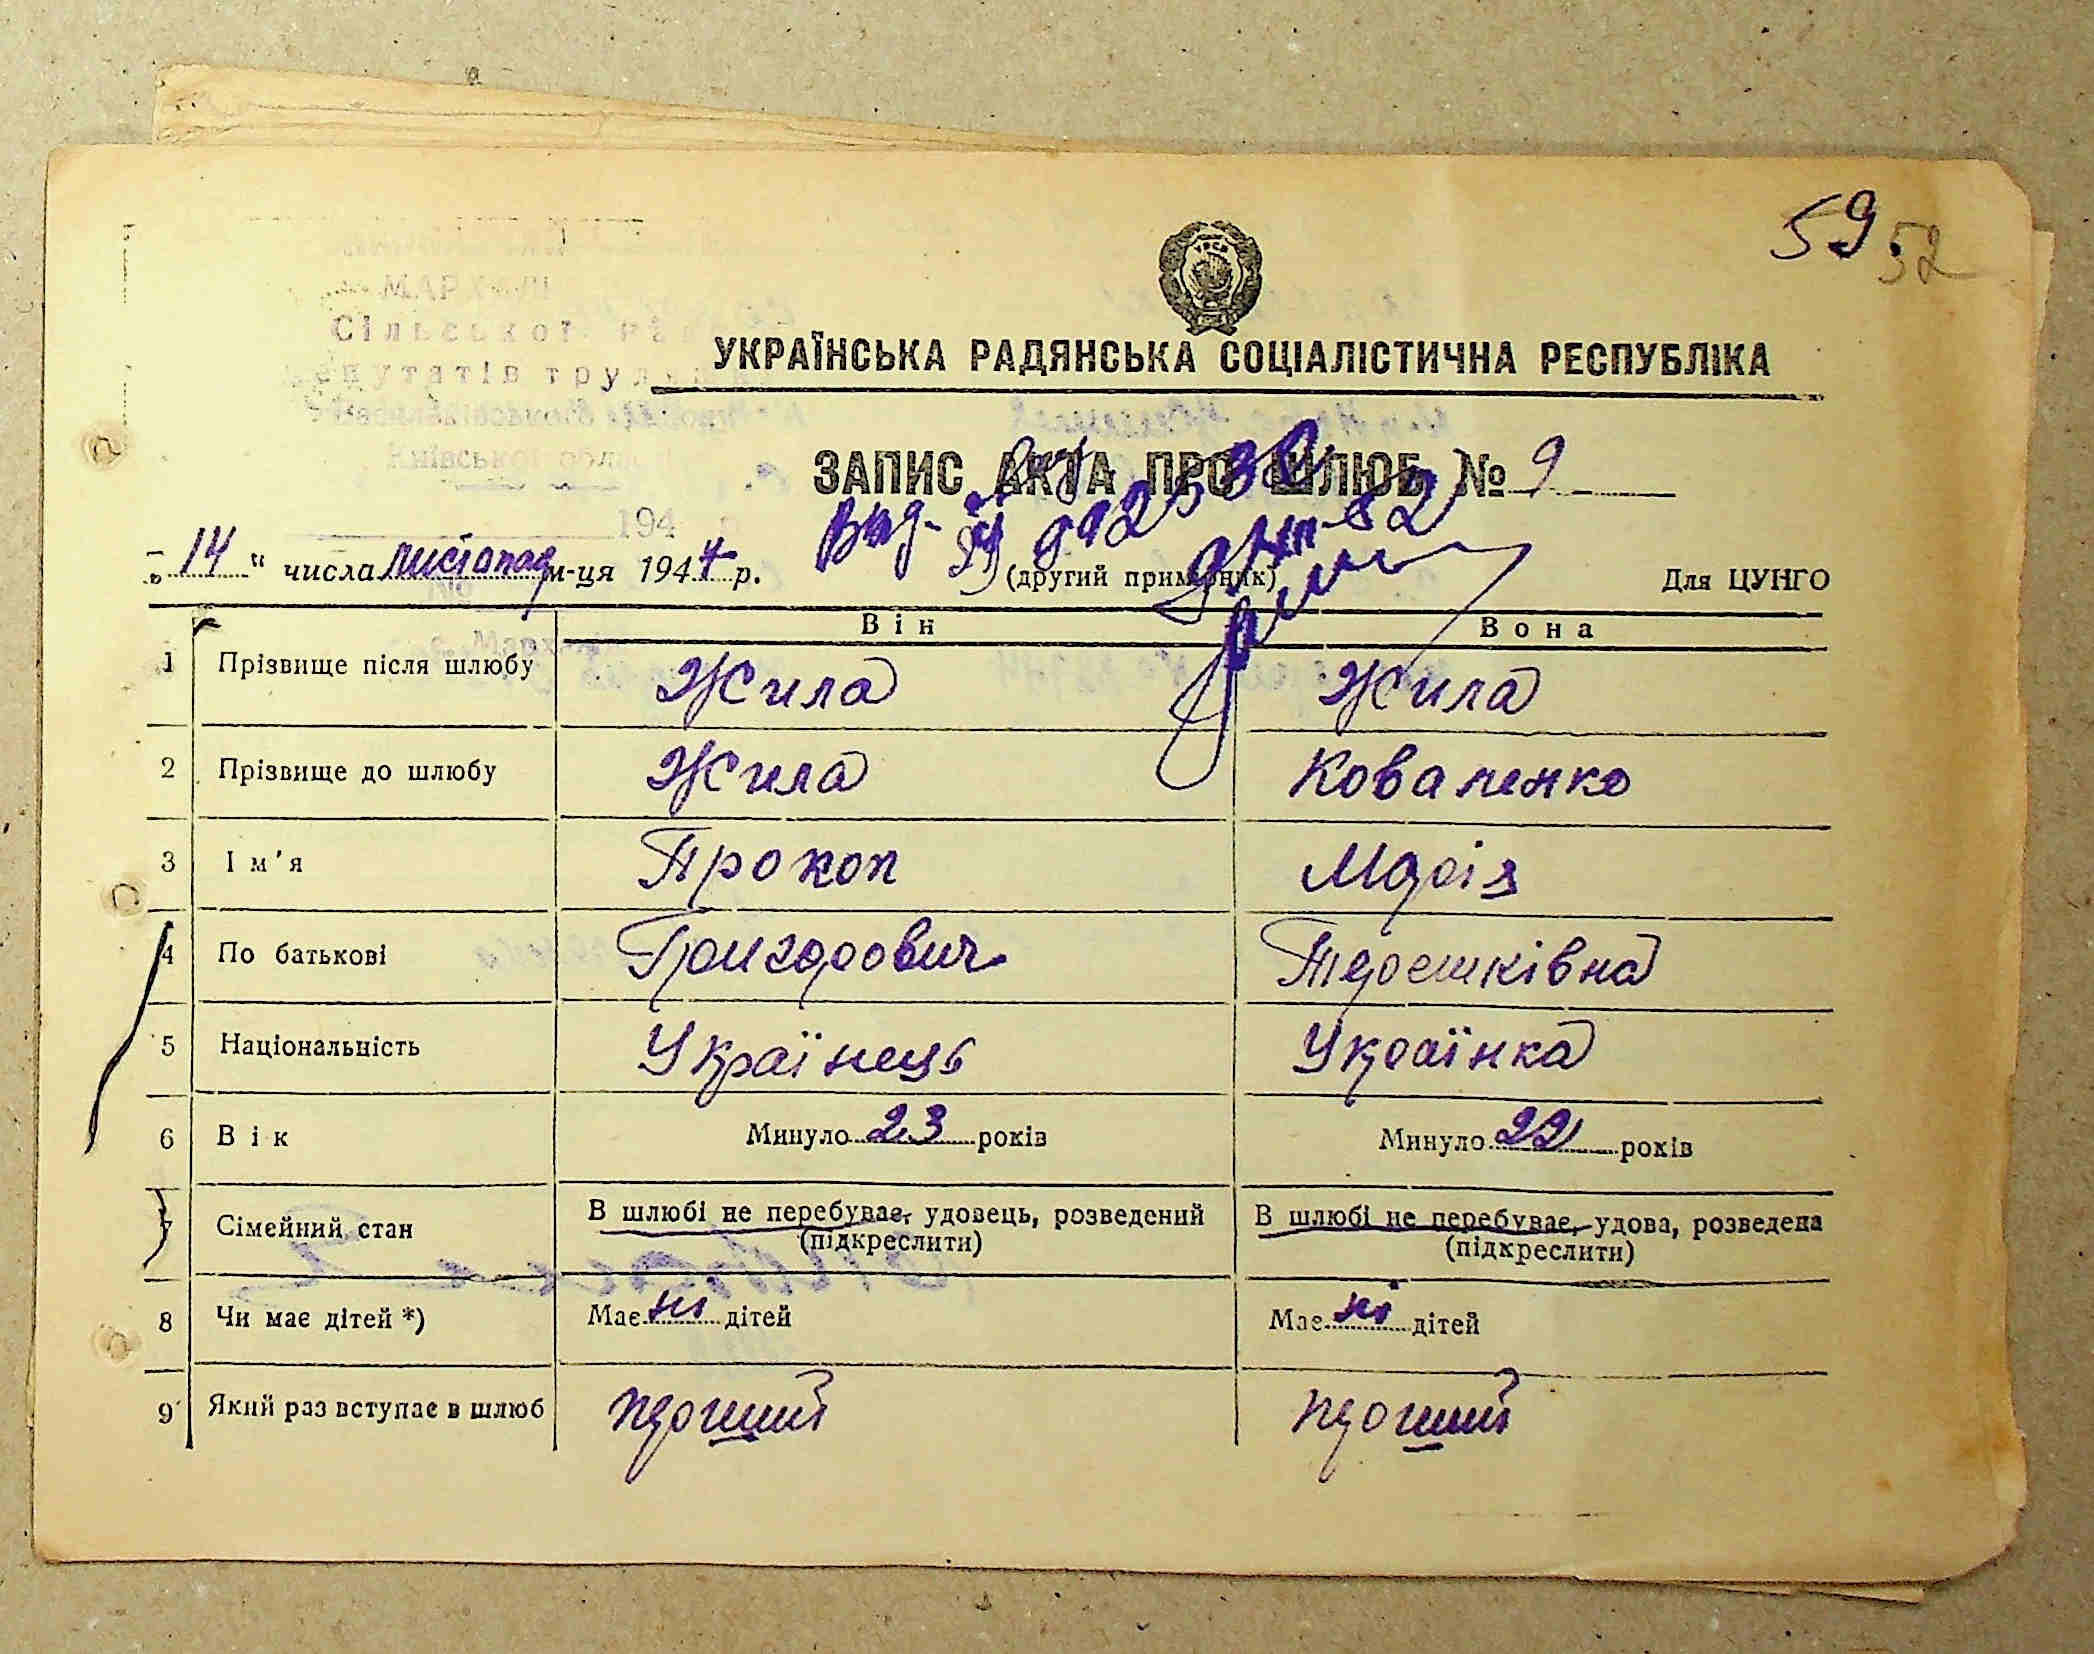 59 52
УРСР
УКРАЇНСЬКА РАДЯНСЬКА СОЦІАЛІСТИЧНА РЕСПУБЛІКА
Сільської
депутатів
Київської
194
ЗАПИС АКТА ПРО ШЛЮБ № 9
„ 14 " числа листопад м-ця 1944 р. (другий примірник) Для ЦУНГО
Він Вона
1 Прізвище після шлюбу Жила Жила
2 Прізвище до шлюбу Жила Коваленко
3 Ім'я Прокоп Марія
4 По батькові Григорович Терешківна
5 Національність Українець Українка
6 Вік Минуло 23 років Минуло 22 років
7 Сімейний стан В шлюбі не перебуває, удовець, розведений В шлюбі не перебуває, удова, розведена
(підкреслити) (підкреслити)
8 Чи має дітей *) Має ні дітей Має ні дітей
9 Який раз вступає в шлюб перший перший